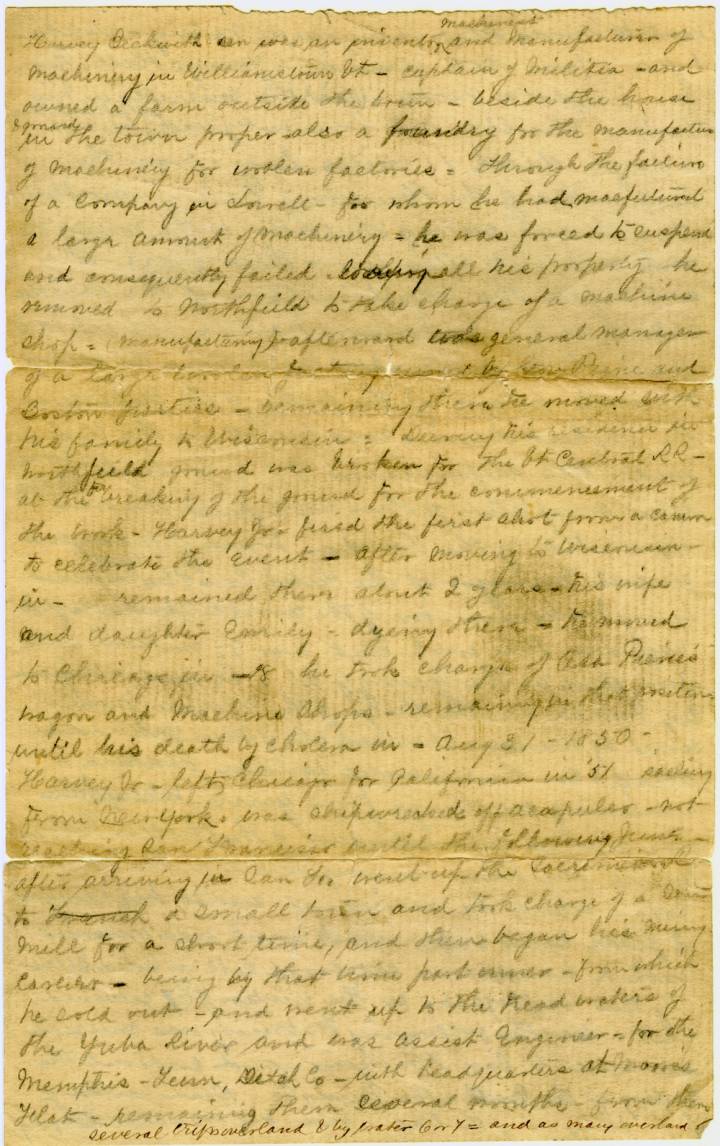 machinest
Harvey Beckwith sen was an inventor, and Manufacturer of
Machinery in Williamstown Vt - Captain of Militia - and
owned a farm outside the town - beside the house
& ground
in the town proper also a foundry for the manufacture
of Machinery for woolen factories = Through the failure
of a Company in Lowell - for whom he had
a large amount of Machinery = he was forced to suspend
and consequently failed all his property he
removed to Northfield to take charge of a machine
shop = (manufacturing) afterward was general manager
of a large woolen owned by Gov Paine and
Boston parties - remaining there moved with
his family to Wisconsin = During his residence in
Northfield ground was broken for the Vt Central RR -
at the breaking of the ground for the commencement of
the work - Harvey Jr. fired the first shot from a canon
to celebrate the event - after moving to Wisconsin -
in - remained there about 2 years - his wife
and daughter Emily - dyeing there = removed
to Chicago in he took charge of Asa Pierces
wagon and Machine Shops - remaining in that
until his death by cholera in - Aug 31 - 1850 -
Harvey Jr - left Chicago for California in '51 sailing
from New York. was shipwrecked off Acapulco - not
reaching San Francisco until the following June -
after arriving in San Fr. went up the Sacramento
to a small town and took charge of a
Mill for a short time, and then began his Mining
Career - being by that time part owner - from which
he sold out - and went up to the Head waters of
the Yuba River and was assist Engineer - for the
Memphis - Tenn, Ditch Co - with headquarters at Moores
Flat - remaining there several months - from there
several trips overland & by water 6 or 7 = and as many overland